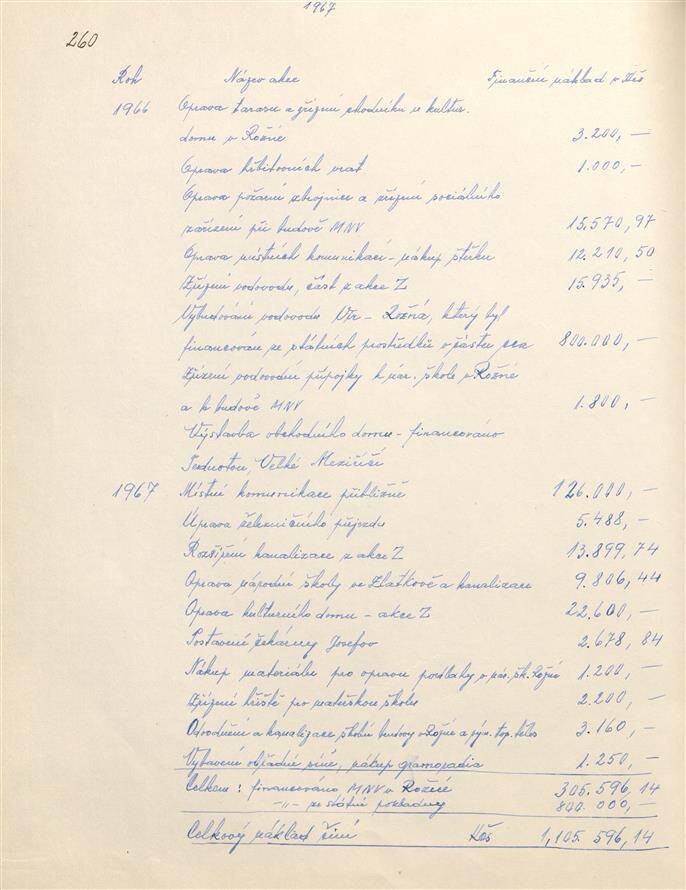 1967
260
Rok Název akce Finanční náklad v Kčs
1966 Oprava tarasu a zřízení chodníku u kultur.
domu v Rožné 3.200,—
Oprava hřbitovních vrat 1.000,—
Oprava požární zbrojnice a zřízení sociálního
zařízení při budově MNV 15.570,97
Oprava místních komunikací - nákup štěrku 12.210,50
Zřízení vodovodu, část z akce Z 15.935,—
Vybudování vodovodu Vír - Rožná, který byl
financován ze státních prostředků v částce cca 800.000,—
Zřízení vodovodní přípojky k nár. škole v Rožné
a k budově MNV 1.800,—
Výstavba obchodního domu - financováno
Jednotou, Velké Meziříčí
1967 Místní komunikace přibližně 126.000,—
Úprava železničního příjezdu 5.488,—
Rozšíření kanalizace z akce Z 13.899,74
Oprava národní školy ve Zlatkově a kanalizace 9.806,44
Oprava kulturního domu - akce Z 22.600,—
Postavení čekárny Josefov 2.678,84
Nákup materiálu pro opravu podlahy v nár. šk. Rožné 1.200,—
Zřízení hřiště pro mateřskou školu 2.200,—
Odvodnění a kanalizace školní budovy v Rožné a top. těles 3.160,—
Vybavení obřadní síně, nákup gramoradia 1.250,—
Celkem: financováno MNV v Rožné 305.596,14
-„- ze státní pokladny 800.000,—
Celkový náklad činí Kčs 1,105.596,14